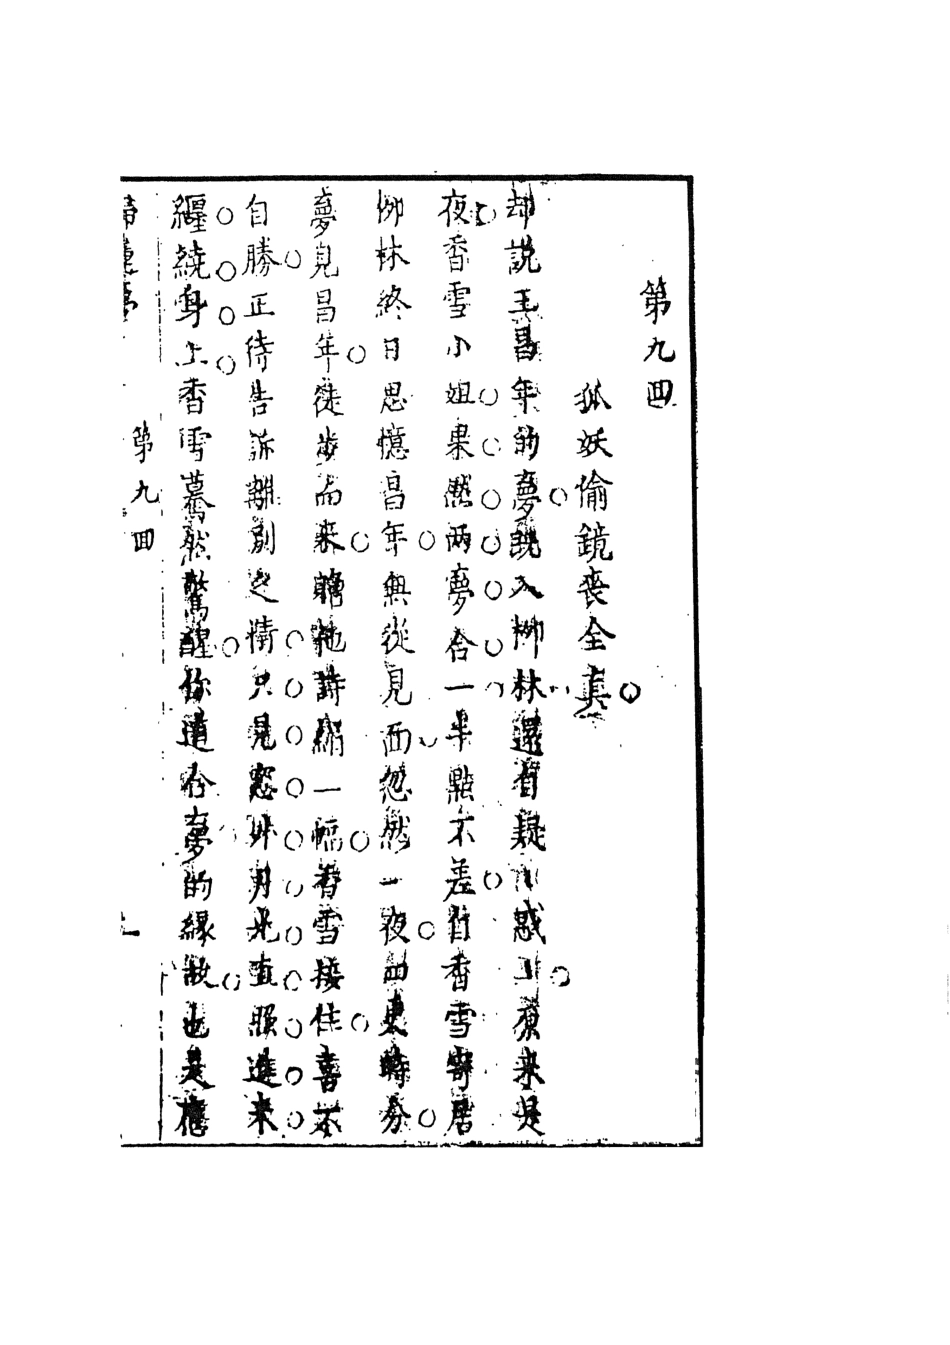 第九回
狐妖偷鏡喪全真
却說王昌年的夢既入柳林還有疑惑原來是
夜香雪小姐果然兩夢合一半點不差自香雪寄居
柳林終日思憶昌年無從見面忽然一夜四更時分
夢見昌年徒步而來贈他詩絹一幅香雪接住喜不
自勝正待告訴離別之情只見窓外月光直照進來
纏繞身上香雪驀然驚醒你道合夢的緣故也是應
第九回